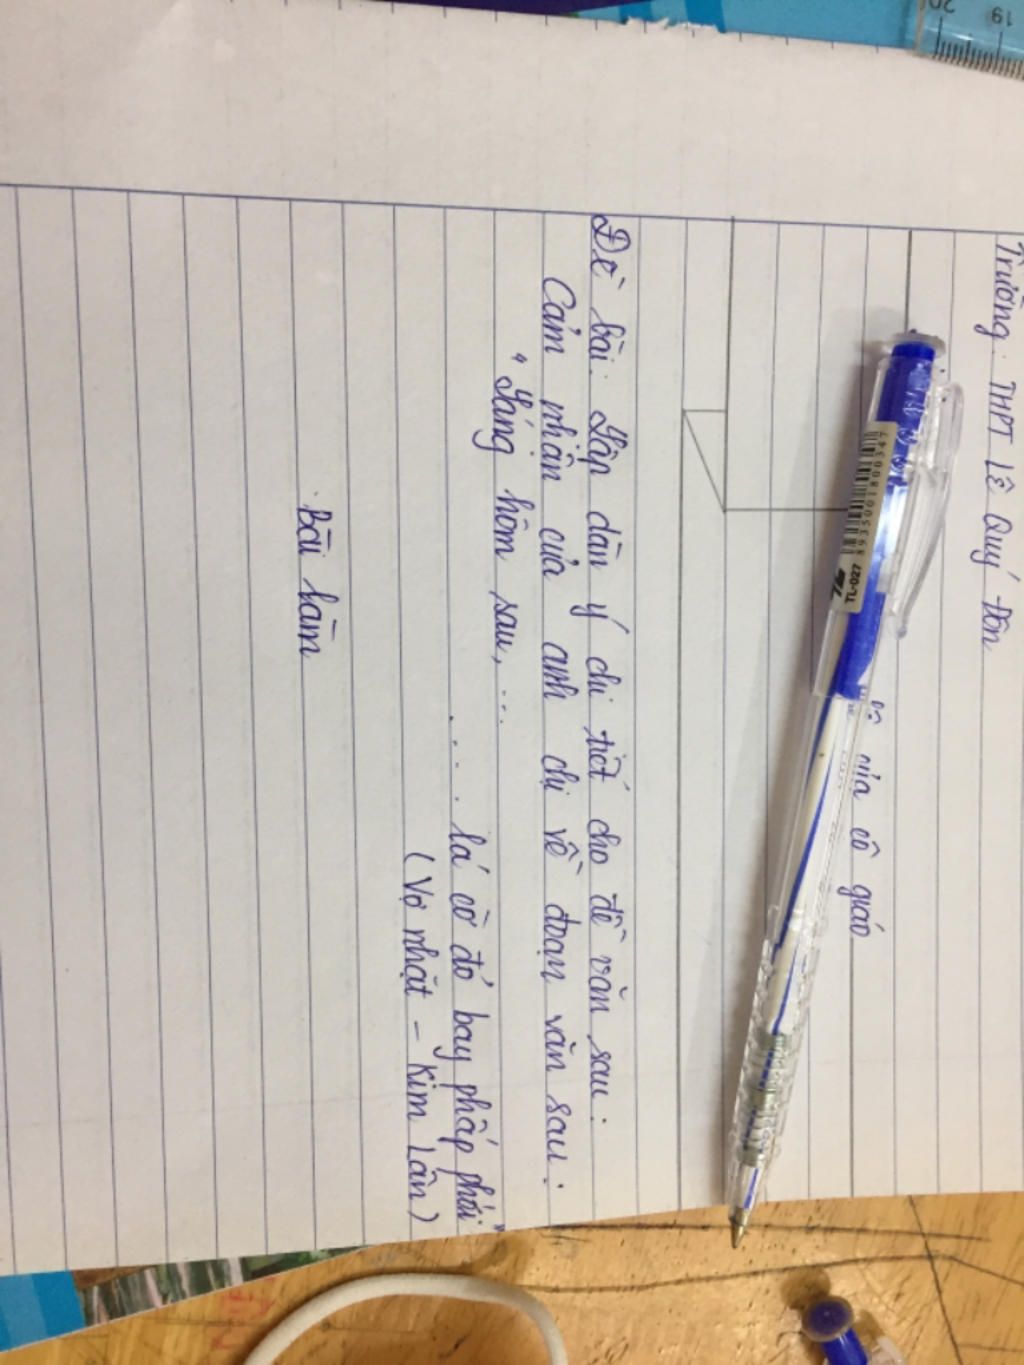 Trường: THPT Lê Quý Đôn
của cô giáo
Đề bài: Lập dàn ý chi tiết cho đề văn sau:
Cảm nhận của anh chị về đoạn văn sau:
"Sáng hôm sau, ...
.... lá cờ đỏ bay phấp phới"
(Vợ nhặt - Kim Lân)
Bài làm
TL-027 8935001800347
19
20